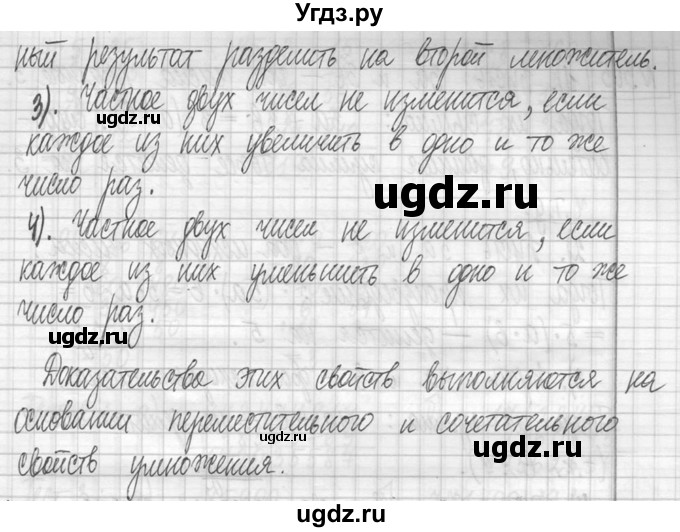 Угдз.ру
ный результат разделить на второй множитель.
3). Частное двух чисел не изменится, если
ugdz.ru
каждое из них увеличить в одно и то же
число раз.
ugdz.ru
4). Частное двух чисел не изменится, если
ugdz.ru
каждое из них уменьшить в одно и то же
число раз.
ugdz.ru
Доказательства этих свойств выполняются на
основании переместительного и сочетательного
ugdz.ru
свойств умножения.
ugdz.ru
ugdz.ru